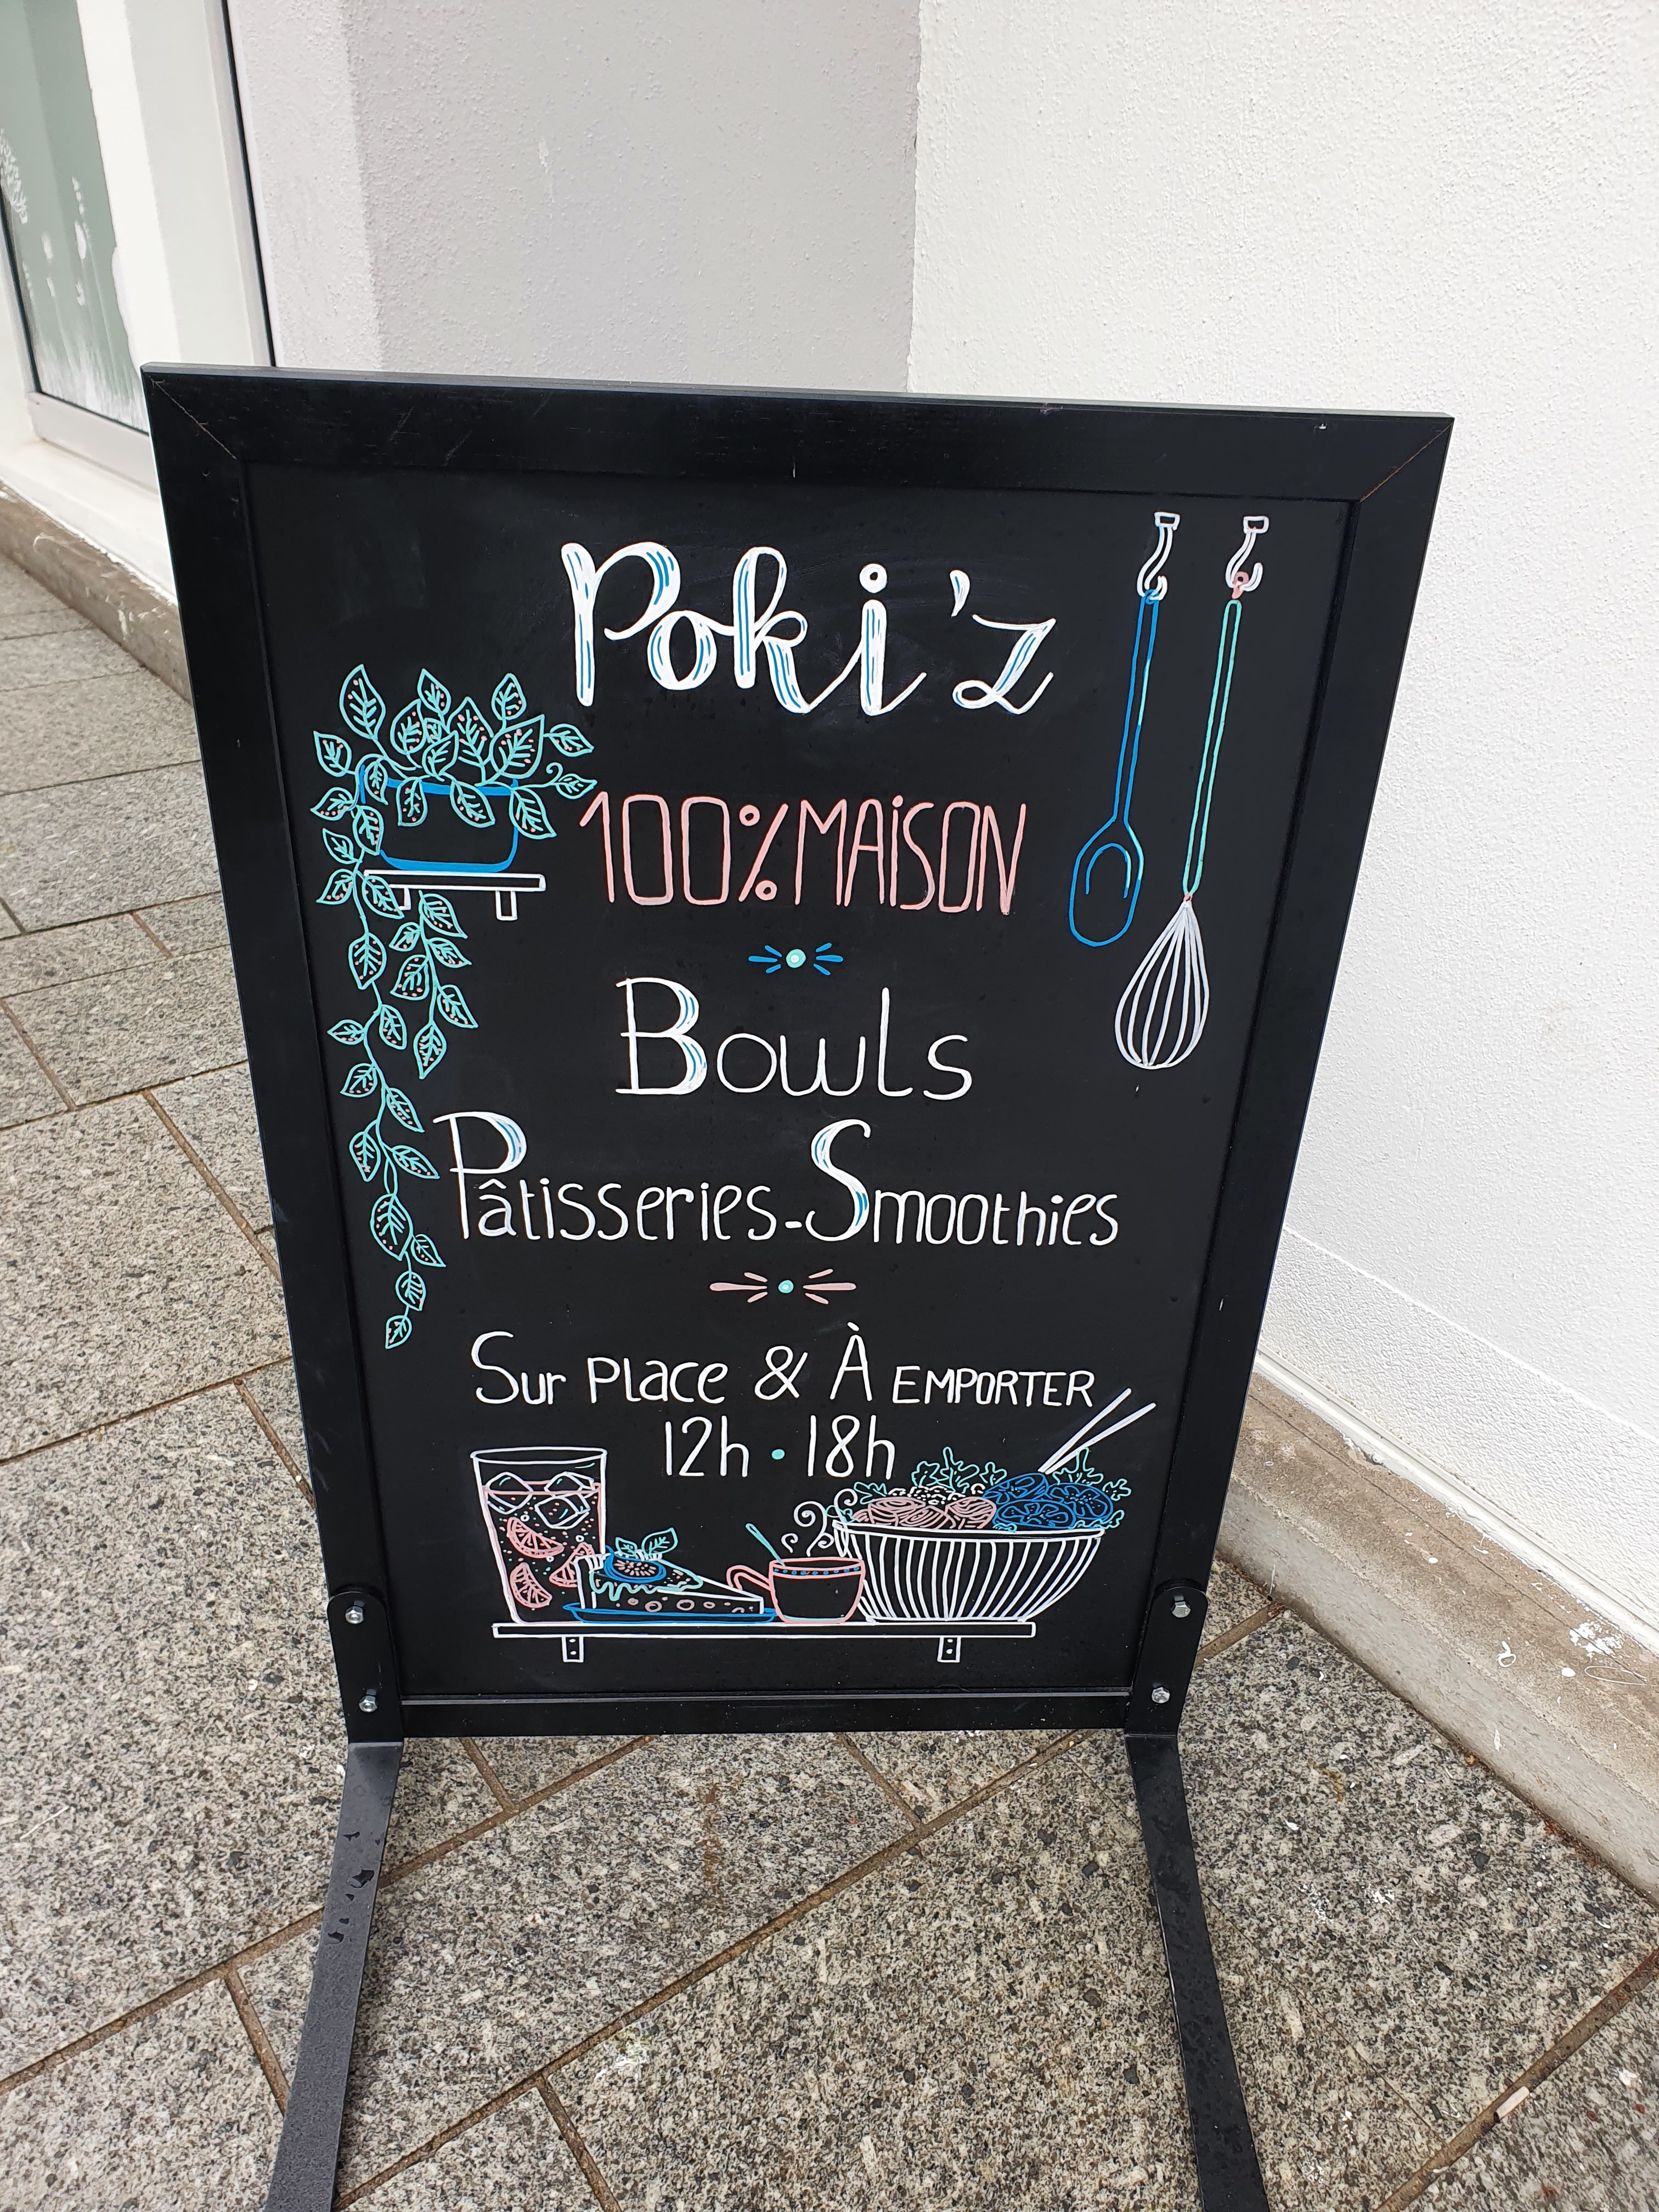 Poki'z
100% MAiSON
Bowls
Pâtisseries - Smoothies
Sur Place & À EMPORTER
12h • 18h